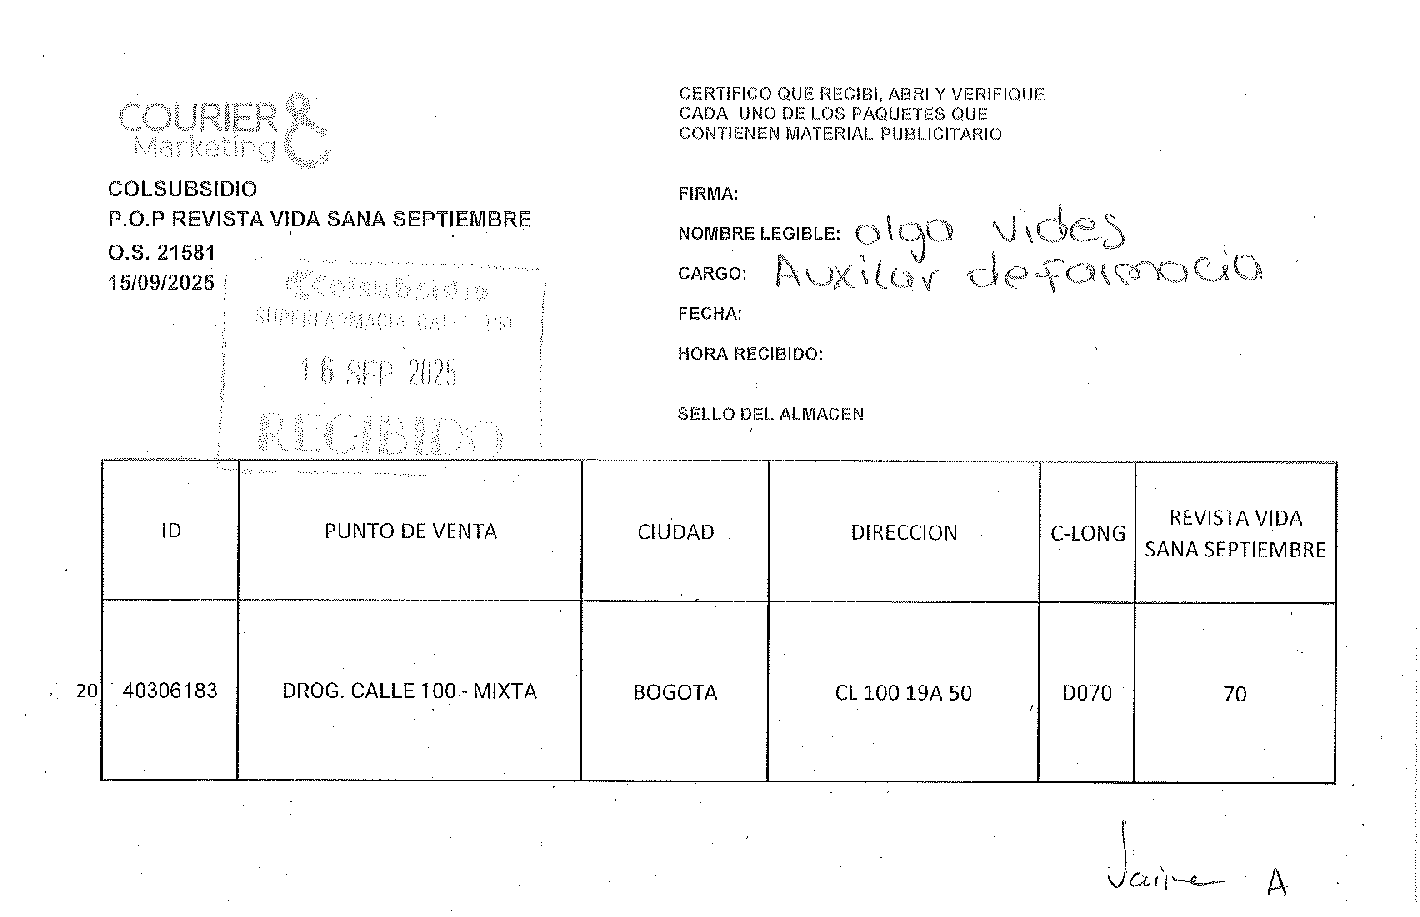 COURIER
Marketing
COLSUBSIDIO
P.O.P REVISTA VIDA SANA SEPTIEMBRE
O.S. 21581
15/09/2025
Colsubsidio
SUPERFARMACIA
16 SEP 2025
RECIBIDO
CERTIFICO QUE RECIBI, ABRI Y VERIFIQUE
CADA UNO DE LOS PAQUETES QUE
CONTIENEN MATERIAL PUBLICITARIO
FIRMA:
NOMBRE LEGIBLE: olga Vides
CARGO: Auxiliar de farmacia
FECHA:
HORA RECIBIDO:
SELLO DEL ALMACEN
ID PUNTO DE VENTA CIUDAD DIRECCION C-LONG REVISTA VIDA
SANA SEPTIEMBRE
20 40306183 DROG. CALLE 100 - MIXTA BOGOTA CL 100 19A 50 D070 70
Jaime A